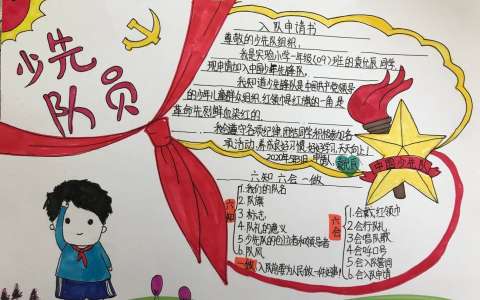 少先
队员
入队申请书
尊敬的少先队组织,
我是实验小学一年级(09)班的袁 同学,
现申请加入中国少年先锋队。
我知道少先队是中国共产党领导
的少年儿童群众组织,红领巾是红旗的一角,是
革命先烈鲜血染红的.
我会遵守各项纪律,团结同学积极参加各
项活动,养成良好习惯,好好学习,天天向上!
2020年5月 日 申请人
中国少先队
六知 六会 一做
六知
1.我们的队名
2.队旗
3.标志
4.队礼的意义
5.少先队的创立者和领导者
6.队风
六会
1.会戴红领巾
2.会行队礼
3.会唱队歌
4.会呼口号
5.会入队誓词
6.会入队申请
一做
入队前要为人民做一件好事!